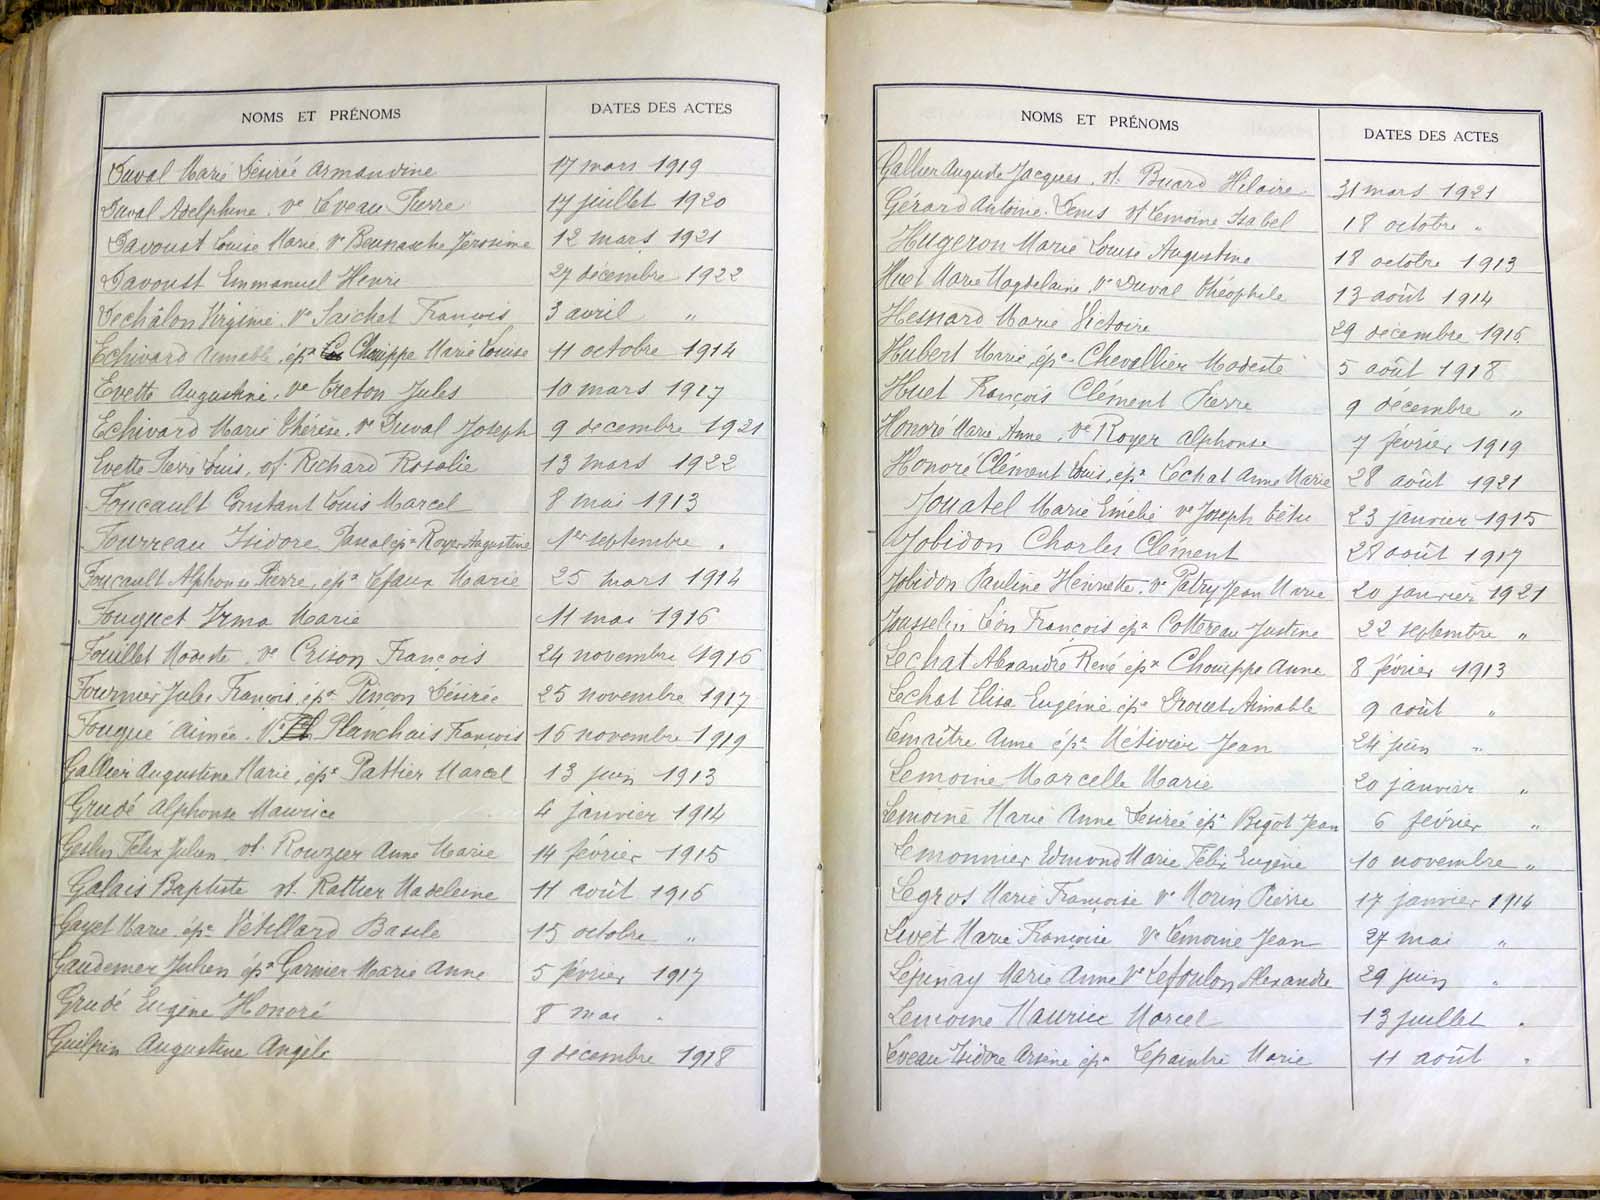 NOMS ET PRÉNOMS DATES DES ACTES
Duval Marie Désirée Armandine 17 mars 1919
Duval Adelphine, Ve Leveau Pierre 17 juillet 1920
Davoust Louise Marie, Ve Jerosime 12 mars 1921
Davoust Emmanuel Henri 27 décembre 1922
Dechâlon Virginie, Ve Saichet François 3 avril "
Echivard Aimable, épx Chouippe Marie Louise 11 octobre 1914
Evette Augustine, Ve Breton Jules 10 mars 1917
Echivard Marie Thérèse, Ve Duval Joseph 9 decembre 1921
Evette Pierre Louis, vf. Richard Rosalie 13 mars 1922
Foucault Constant Louis Marcel 8 mai 1913
Fourreau Isidore Pascal épx Royer Augustine 1er septembre "
Foucault Alphonse Pierre, épx Lefaux Marie 25 mars 1914
Fouquet Irma Marie 11 mai 1916
Fouillet Modeste, Ve Crison François 24 novembre 1916
Fournier Jules François, épx Pinçon Désirée 25 novembre 1917
Fouqué Aimée, Ve Planchais François 16 novembre 1919
Gallier Augustine Marie, épse Pattier Marcel 13 juin 1913
Grudé Alphonse Maurice 4 janvier 1914
Geslin Félix Julien, vf. Rouzier Anne Marie 14 février 1915
Galais Baptiste vf. Rattier Madeleine 11 août 1916
Gayet Marie épse Vétillard Basile 15 octobre "
Gaudemer Julien épx Garnier Marie Anne 5 février 1917
Grudé Eugène Honoré 8 mai "
Guilpin Augustine Angèle 9 decembre 1918
NOMS ET PRÉNOMS DATES DES ACTES
Gallier Auguste Jacques, vf. Buard Hilaire 31 mars 1921
Gérard Antoine Denis vf Lemoine Isabel 18 octobre "
Hugeron Marie Louise Augustine 18 octobre 1913
Huet Marie Magdelaine, Ve Duval Théophile 13 août 1914
Hesnard Marie Victoire 29 decembre 1916
Hubert Marie, épse Chevallier Modeste 5 août 1918
Huet François Clément Pierre 9 décembre "
Honoré Marie Anne, Ve Royer Alphonse 7 février 1919
Honoré Clément Louis, épx Lechat Anne Marie 28 août 1921
Jouatel Marie Emélie ve Joseph Tétu 23 janvier 1915
Jobidon Charles Clément 28 août 1917
Jobidon Pauline Henriette, Ve Patry Jean Marie 20 janvier 1921
Jousselin Léon François épx Cottereau Justine 22 septembre "
Lechat Alexandre René épx Chouippe Anne 8 février 1913
Lechat Elisa Eugénie épse Drouet Aimable 9 août "
Lemaître Anne épse Métivier Jean 24 juin "
Lemoine Marcelle Marie 20 janvier "
Lemoine Marie Anne Désirée épse Bigot Jean 6 février "
Lemonnier Edmond Marie Félix Eugène 10 novembre "
Legros Marie Françoise Ve Morin Pierre 17 janvier 1914
Livet Marie Françoise Ve Lemoine Jean 27 mai "
Lépinay Marie Anne Ve Lefoulon Alexandre 29 juin "
Lemoine Maurice Marcel 13 juillet "
Leveau Isidore Arsène épx Lepaintre Marie 11 août "